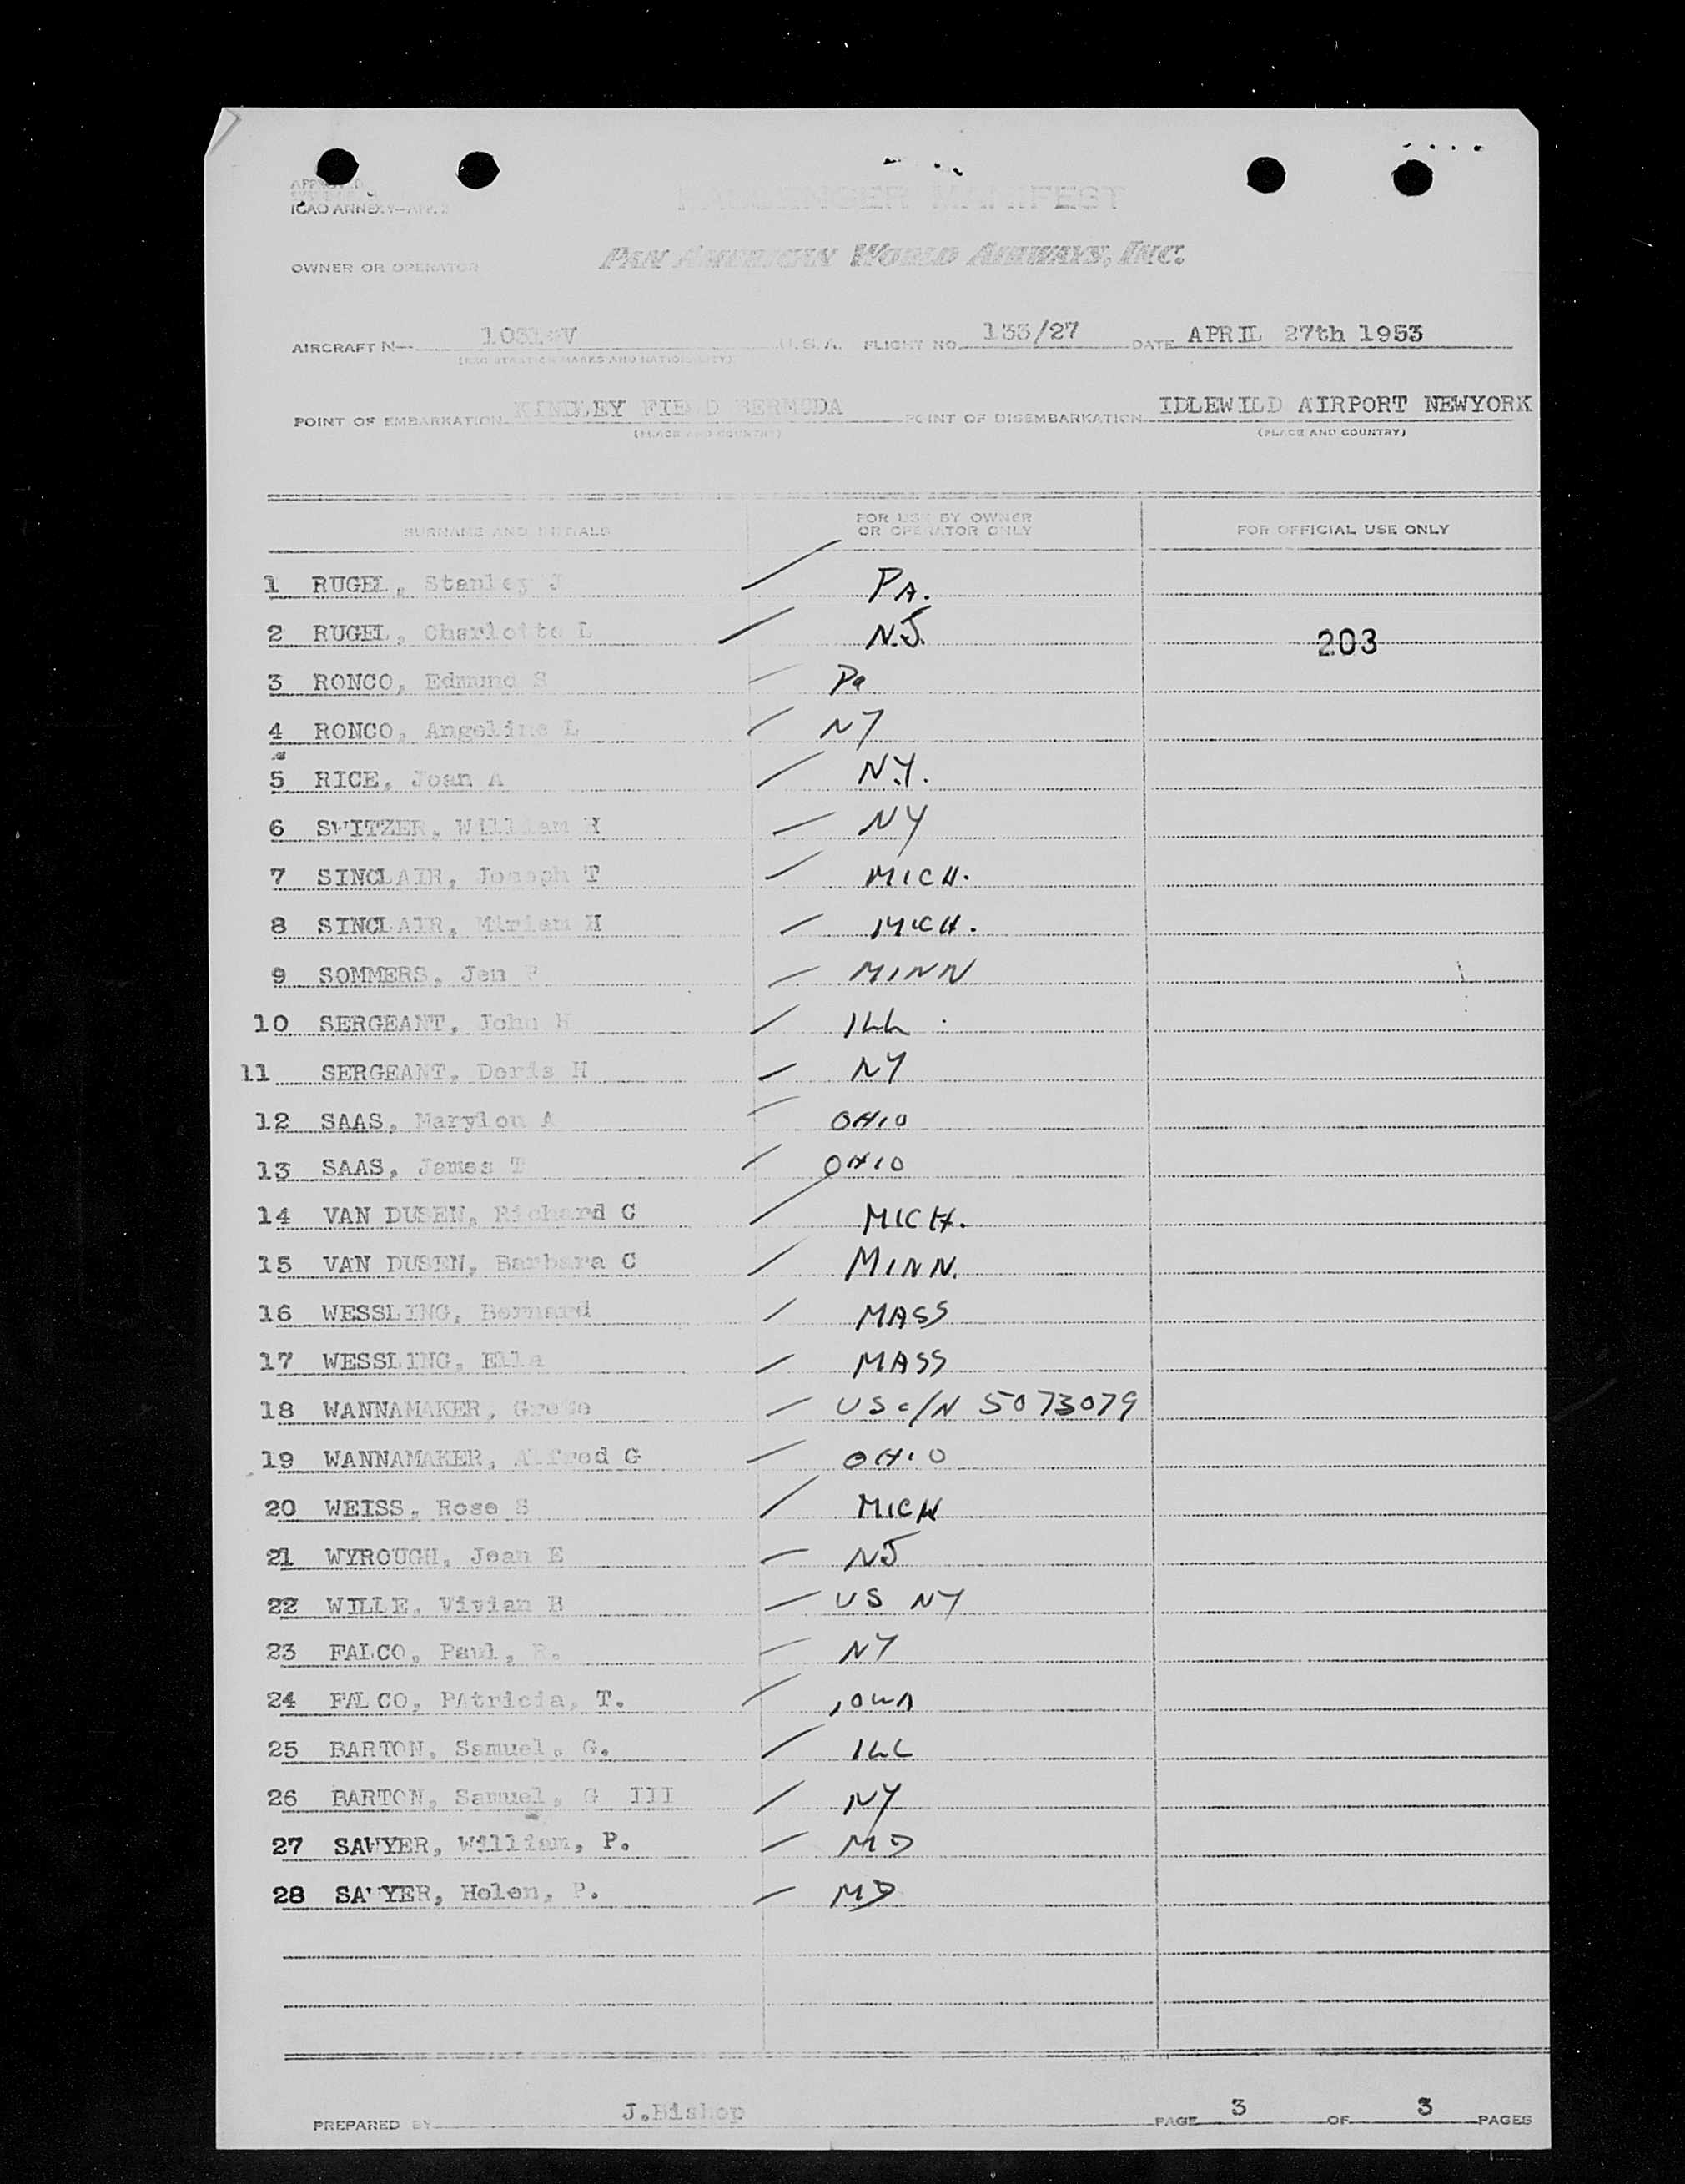 APPROVED
ICAO ANNEX 9—APP. 2
PASSENGER MANIFEST
OWNER OR OPERATOR PAN AMERICAN WORLD AIRWAYS, INC.
AIRCRAFT N U.S.A. FLIGHT NO. 133/27 DATE APRIL 27th 1953
(REGISTRATION MARKS AND NATIONALITY)
POINT OF EMBARKATION KINDLEY FIELD BERMUDA POINT OF DISEMBARKATION IDLEWILD AIRPORT NEWYORK
(PLACE AND COUNTRY) (PLACE AND COUNTRY)
SURNAME AND INITIALS FOR USE BY OWNER OR OPERATOR ONLY FOR OFFICIAL USE ONLY
1 RUGEL, Stanley J PA.
2 RUGEL, Charlotte L N.J. 203
3 RONCO, Edmund S Pa
4 RONCO, Angeline L NY
5 RICE, Joan A N.Y.
6 SWITZER, William H NY
7 SINCLAIR, Joseph T MICH.
8 SINCLAIR, Miriam H MICH.
9 SOMMERS, Jen MINN
10 SERGEANT, John H ILL
11 SERGEANT, Doris H NY
12 SAAS, Marylou A OHIO
13 SAAS, James T OHIO
14 VAN DUSEN, Richard C MICH.
15 VAN DUSEN, Barbara C MINN.
16 WESSLING, Bernard MASS
17 WESSLING, Ella MASS
18 WANNAMAKER, US c/N 5073079
19 WANNAMAKER, Alfred G OHIO
20 WEISS, Rose S MICH
21 WYROUGH, Jean E NJ
22 WILLE, Vivian US NY
23 FALCO, Paul, R. NY
24 FALCO, PAtricia, T. IOWA
25 BARTON, Samuel, G. ILL
26 BARTON, Samuel, G III NY
27 SAWYER, William, P. MD
28 SAWYER, Helen, P. MD
PREPARED BY J.Bishop PAGE 3 OF 3 PAGES